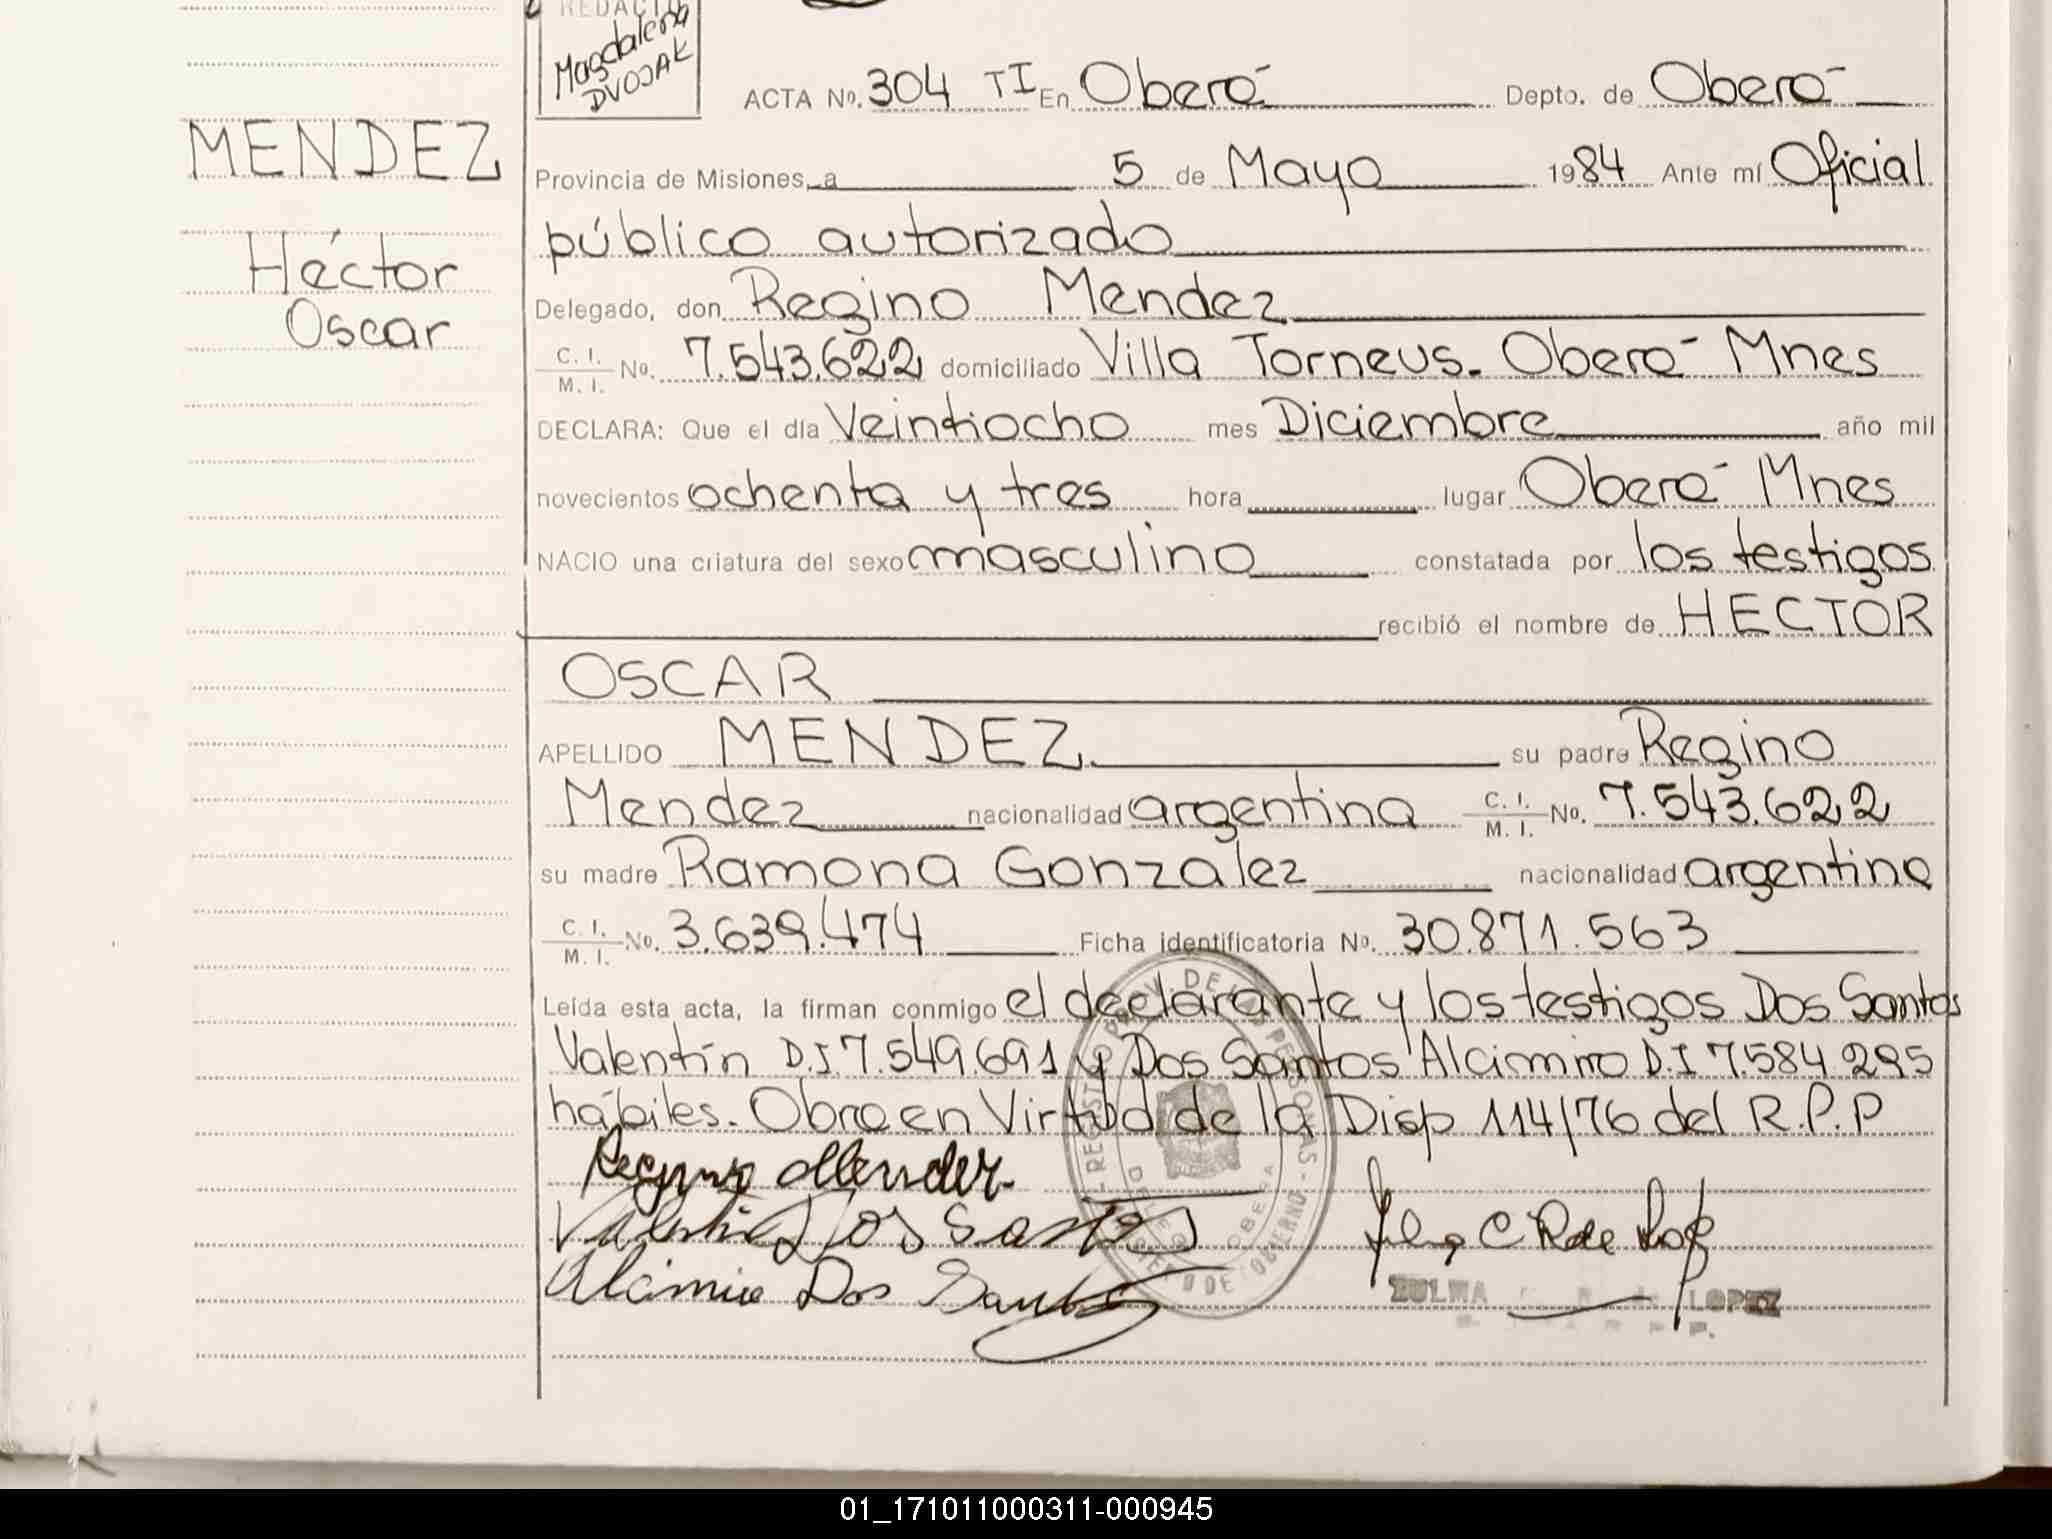 REDACTO
Magdalena
DVOJAK
ACTA No. 304 TI En Oberá Depto. de Oberá
MENDEZ
Provincia de Misiones, a 5 de Mayo 1984 Ante mí Oficial
público autorizado
Héctor
Delegado, don Regino Mendez
Oscar
C. I.
M. I. No. 7.543.622 domiciliado Villa Torneus. Oberá Mnes
DECLARA: Que el día Veintiocho mes Diciembre año mil
novecientos ochenta y tres hora lugar Oberá Mnes
NACIO una criatura del sexo masculino constatada por los testigos
recibió el nombre de HECTOR
OSCAR
APELLIDO MENDEZ su padre Regino
Mendez nacionalidad argentina C. I. M. I. No. 7.543.622
su madre Ramona Gonzalez nacionalidad argentina
C. I. M. I. No. 3.639.474 Ficha identificatoria No. 30.871.563
Leída esta acta, la firman conmigo el declarante y los testigos Dos Santos
Valentín D.I. 7.549.691 y Dos Santos Alcimiro D.I 7.584.295
hábiles. Obra en Virtud de la Disp 114/76 del R.P.P
Regino Mendez
Valentin Dos Santos
Alcimiro Dos Santos
ZULMA LOPEZ
01_171011000311-000945